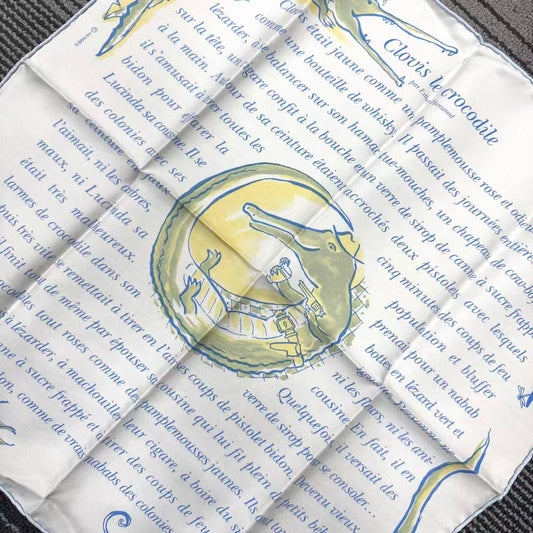 Clovis le crocodile
par
Clovis était jaune comme pamplemousse rose et
comme une bouteille de whisky. Il passait des journées entières
lézarder, se balancer sur son que-mouches, un chapeau de cow-bo
sur la tête, un gare confit à la bouche un verre de sirop de canne à sucre frapp
à la main. Autour de sa ceinture étaient crochés deux pistolets avec lesquels
il s'amusait à tirer toutes les cinq minutes des coups de feu
bidon pour effarer la population et bluffer
Lucinda sa cousine. Il se prenait pour un nabab
des colonies avec ses bottes en lézard vert et
sa ceinture
l'aimait, ni les arbres, ni les fleurs, ni les ani
maux, ni Lucinda sa cousine. En fait, il en
était très malheureux. Quelquefois il versait des
larmes de crocodile dans son verre de sirop pour se consoler...
puis très vite se remettait à tirer en l'air des coups de pistolet bidon. Devenu vieux,
il finit tout de même par épouser sa cousine qui lui fit plein de petits béb
codiles tout roses comme des pamplemousses jaunes. Ils ont
lézarder, à machouiller leur cigare, à boire du si
ne à sucre frappé et à tirer des coups de feu
on, comme de vrais nababs des colonies